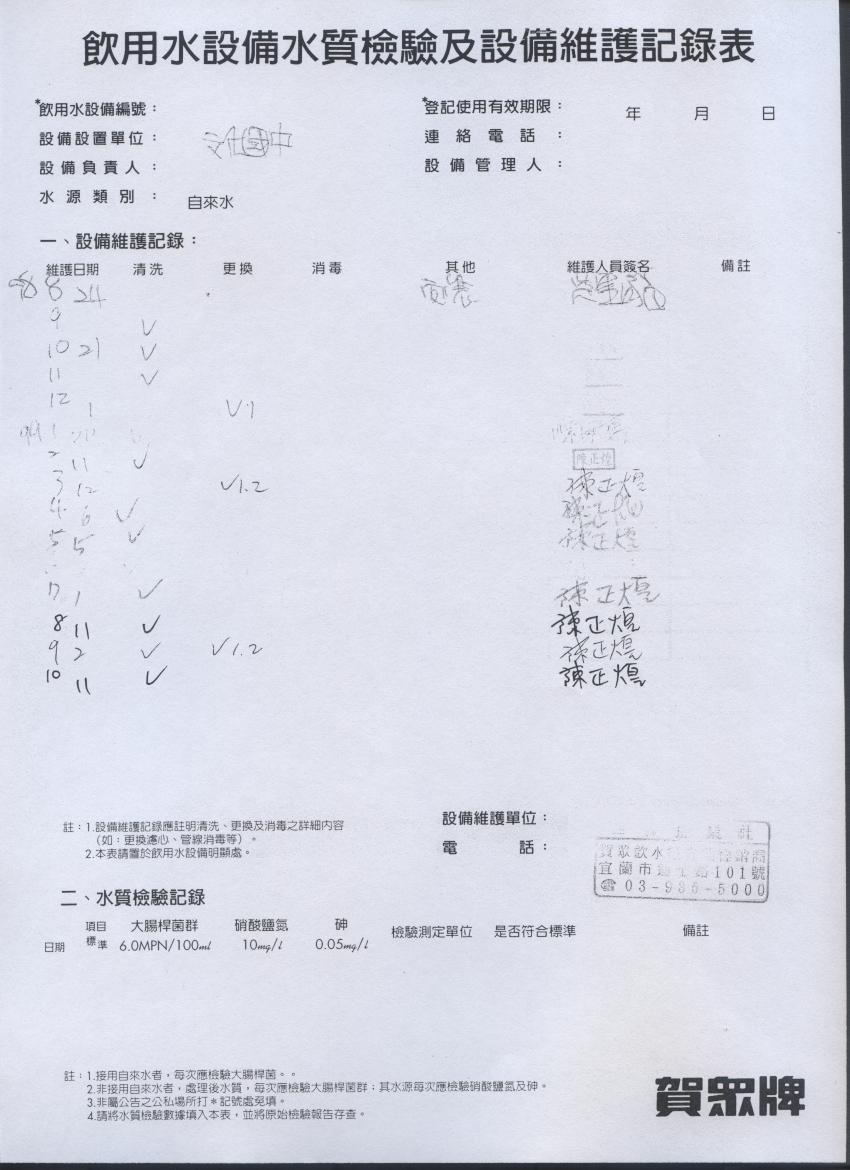 飲用水設備水質檢驗及設備維護記錄表
*飲用水設備編號： *登記使用有效期限： 年 月 日
設備設置單位： 國中 連絡電話：
設備負責人： 設備管理人：
水源類別： 自來水
一、設備維護記錄：
維護日期 清洗 更換 消毒 其他 維護人員簽名 備註
8 24 安裝
9 ✓
10 21 ✓
11 ✓
12 1 ✓1
1
2 11 ✓ 陳正煌
3 12 ✓1.2 陳正煌
4 6 ✓ 陳正煌
5 5 ✓ 陳正煌
7 1 ✓ 陳正煌
8 11 ✓ 陳正煌
9 2 ✓ ✓1.2 陳正煌
10 11 ✓ 陳正煌
註：1.設備維護記錄應註明清洗、更換及消毒之詳細內容
（如：更換濾心、管線消毒等）。
2.本表請置於飲用水設備明顯處。
設備維護單位：
電話：
賀眾飲水
宜蘭市 路101號
☎ 03-936-5000
二、水質檢驗記錄
項目 大腸桿菌群 硝酸鹽氮 砷 檢驗測定單位 是否符合標準 備註
日期 標準 6.0MPN/100ml 10mg/l 0.05mg/l
註：1.接用自來水者，每次應檢驗大腸桿菌。。
2.非接用自來水者，處理後水質，每次應檢驗大腸桿菌群；其水源每次應檢驗硝酸鹽氮及砷。
3.非屬公告之公私場所打＊記號處免填。
4.請將水質檢驗數據填入本表，並將原始檢驗報告存查。
賀眾牌